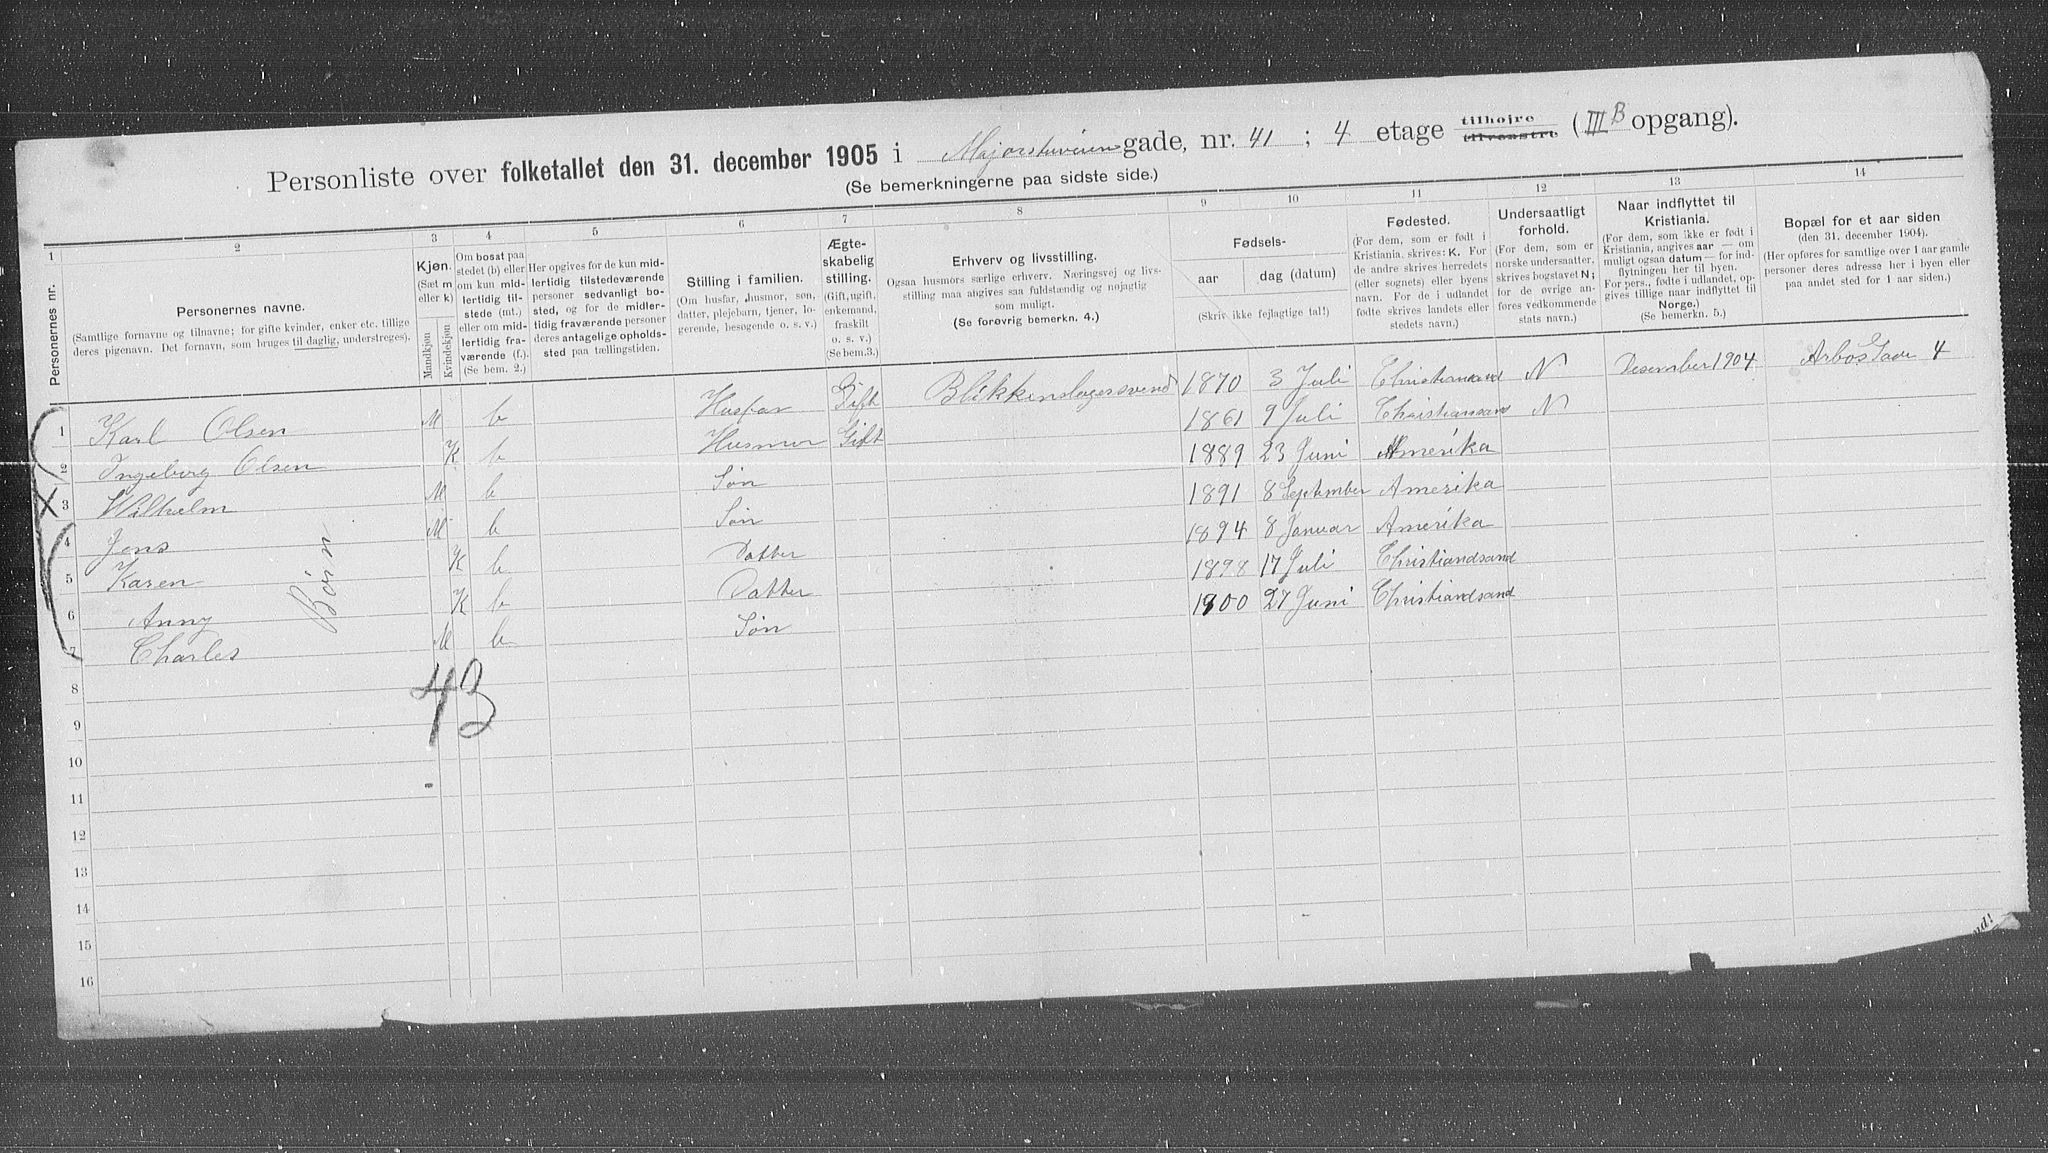 Personliste over folketallet den 31. december 1905 i Majorstuveien gade, nr. 41 ; 4 etage tilhøjre tilvenstre (III B opgang).
(Se bemerkningerne paa sidste side.)
1 2 3 4 5 6 7 8 9 10 11 12 13 14
Personernes nr.
Personernes navne.
(Samtlige fornavne og tilnavne; for gifte kvinder, enker etc. tillige
deres pigenavn. Det fornavn, som bruges til daglig, understreges).
Kjøn.
(Sæt m
eller k)
Mandkjøn
Kvindekjøn
Om bosat paa
stedet (b) eller
om kun mid-
lertidig til-
stede (mt.)
eller om mid-
lertidig fra-
værende (f.).
(Se bem. 2.)
Her opgives for de kun mid-
lertidig tilstedeværende
personer sedvanligt bo-
sted, og for de midler-
tidig fraværende personer
deres antagelige opholds-
sted paa tællingstiden.
Stilling i familien.
(Om husfar, husmor, søn,
datter, plejebarn, tjener, lo-
gerende, besøgende o. s. v.)
Ægte-
skabelig
stilling.
(Gift, ugift,
enkemand,
fraskilt
o. s. v.)
(Se bem.3.)
Erhverv og livsstilling.
Ogsaa husmors særlige erhverv. Næringsvej og livs-
stilling maa angives saa fuldstændig og nøjagtig
som muligt.
(Se forøvrig bemerkn. 4.)
Fødsels-
aar
dag (datum)
(Skriv ikke fejlagtige tal!)
Fødested.
(For dem, som er født i
Kristiania, skrives: K. For
de andre skrives herredets
(eller sognets) eller byens
navn. For de i udlandet
fødte skrives landets eller
stedets navn.)
Undersaatligt
forhold.
(For dem, som er
norske undersaatter,
skrives bogstavet N;
for de øvrige an-
føres vedkommende
stats navn.)
Naar indflyttet til
Kristiania.
(For dem, som ikke er født i
Kristiania, angives aar — om
muligt ogsaa datum — for ind-
flytningen her til byen.
For pers., fødte i udlandet, op-
gives tillige naar indflyttet til
Norge.)
(Se bemerkn. 5.)
Bopæl for et aar siden
(den 31. december 1904).
(Her opføres for samtlige over 1 aar gamle
personer deres adresse her i byen eller
paa andet sted for 1 aar siden.)
1 Karl Olsen M b Husfar Gift Blikkenslagersvend 1870 3 Juli Christiansand N Desember 1904 Arbos Gade 4
2 Ingeborg Olsen K b Husmur Gift 1861 9 Juli Christiansand N
3 Wilhelm M b Søn 1889 23 Juni Amerika
4 Jens M b Søn 1891 8 September Amerika
5 Karen K b Datter 1894 8 Januar Amerika
6 Anny K b Datter 1898 17 Juli Christiandsand
7 Charles M b Søn 1900 27 Juni Christiandsand
Børn
43
8
9
10
11
12
13
14
15
16
nd!